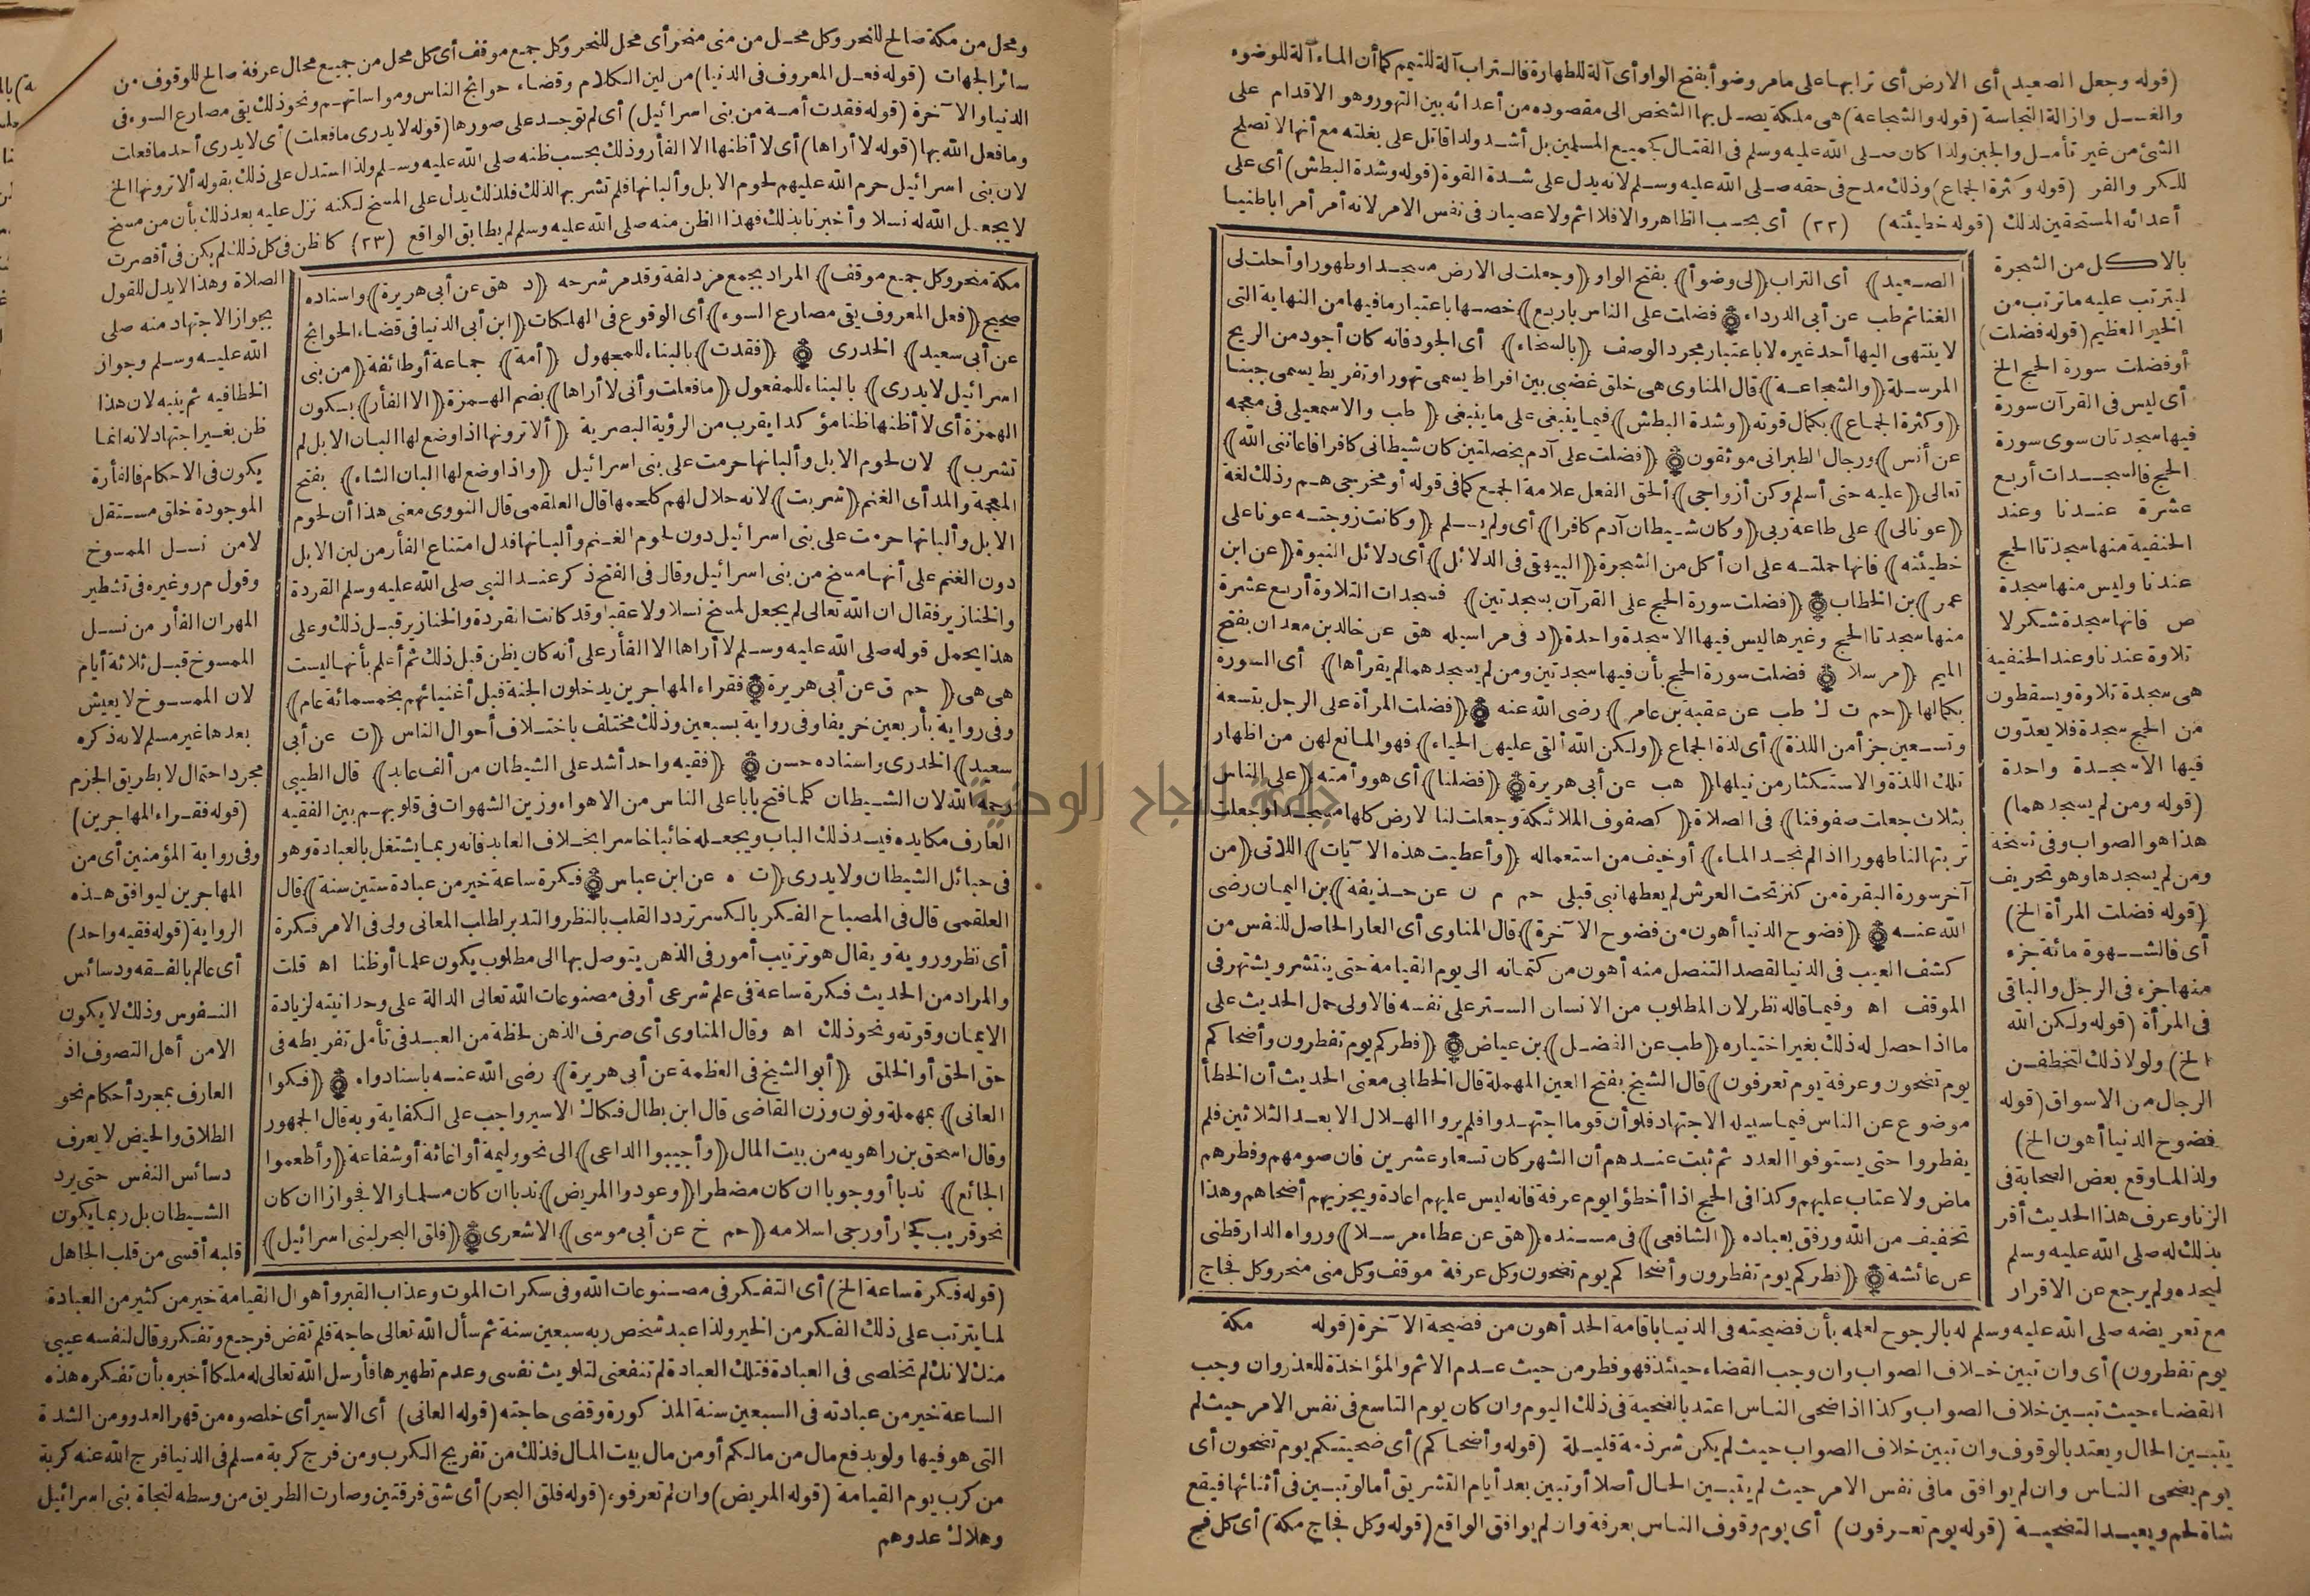 (قوله وجعل الصعيد) أى الارض أى ترابها على مامر وضوأ بفتح الواو أى آلة للطهارة فالتراب آلة للتيمم كما أن الماء آلة للوضوء
والغسل وازالة النجاسة (قوله والشجاعة) هى ملكة يصل بها الشخص الى مقصوده من أعدائه بين التهور وهو الاقدام على
الشئ من غير تأمل والجبن ولذا كان صلى الله عليه وسلم فى القتال كجميع المسلمين بل أشد ولذا قاتل على بغلته مع أنها لا تصلح
للكر والفر (قوله وكثرة الجماع) وذلك مدح فى حقه صلى الله عليه وسلم لانه يدل على شدة القوة (قوله وشدة البطش) أى على
أعدائه المستحقين لذلك (قوله خطيئته) (٢٢) أى بحسب الظاهر والا فلا اثم ولا عصيان فى نفس الامر لانه أمر أمرا باطنيا
بالاكل من الشجرة
ليترتب عليه ما ترتب من
الخير العظيم (قوله فضلت)
أو فضلت سورة الحج الخ
أى ليس فى القرآن سورة
فيها سجدتان سوى سورة
الحج فالسجدات أربع
عشرة عندنا وعند
الحنفية منها سجدتا الحج
عندنا وليس منها سجدة
ص فانها سجدة شكر لا
تلاوة عندنا وعند الحنفية
هى سجدة تلاوة ويسقطون
من الحج سجدة فلا يعدّون
فيها الا سجدة واحدة
(قوله ومن لم يسجدهما)
هذا هو الصواب وفى نسخة
ومن لم يسجدها وهو تحريف
(قوله فضلت المرأة الخ)
أى فالشهوة مائة جزء
منها جزء فى الرجل والباقى
فى المرأة (قوله ولكن الله
الخ) ولولا ذلك لتخطفن
الرجال من الاسواق (قوله
فضوح الدنيا أهون الخ)
ولذا لما وقع بعض الصحابة فى
الزنا وعرف هذا الحديث أقر
بذلك له صلى الله عليه وسلم
ليحده ولم يرجع عن الاقرار
الصعيد) أى التراب (لى وضوأ) بفتح الواو (وجعلت لى الارض مسجدا وطهورا وأحلت لى
الغنائم طب عن أبى الدرداء فضلت على الناس باربع) خصها باعتبار ما فيها من النهاية التى
لا ينتهى اليها أحد غيره لا باعتبار مجرد الوصف (بالسخاء) أى الجود فانه كان أجود من الريح
المرسلة (والشجاعة) قال المناوى هى خلق غضبى بين افراط يسمى تهورا وتفريط يسمى جبنا
(وكثرة الجماع) بكمال قوته (وشدة البطش) فيما ينبغى على ما ينبغى (طب والاسمعيلى فى معجمه
عن أنس) ورجال الطبرانى موثقون (فضلت على آدم بخصلتين كان شيطانى كافرا فاعاننى الله)
تعالى (عليه حتى أسلم وكن أزواجى) ألحق الفعل علامة الجمع كما فى قوله أو مخرجى هم وذلك لغة
(عونا لى) على طاعة ربى (وكان شيطان آدم كافرا) أى ولم يسلم (وكانت زوجته عونا على
خطيئته) فانها حملته على ان أكل من الشجرة (البيهقى فى الدلائل) أى دلائل النبوة (عن ابن
عمر) بن الخطاب (فضلت سورة الحج على القرآن بسجدتين) فسجدات التلاوة أربع عشرة
منها سجدتا الحج وغيرها ليس فيها الا سجدة واحدة (د فى مراسيله هق عن خالد بن معدان بفتح
الميم (مرسلا فضلت سورة الحج بأن فيها سجدتين ومن لم يسجدهما لم يقرأها) أى السورة
بكمالها (حم ت ك طب عن عقبة بن عامر) رضى الله عنه (فضلت المرأة على الرجل بتسعة
وتسعين جزأ من اللذة) أى لذة الجماع (ولكن الله ألقى عليهن الحياء) فهو المانع لهن من اظهار
تلك اللذة والاستكثار من نيلها (هب عن أبى هريرة (فضلنا) أى هو وأمته (على الناس
بثلاث جعلت صفوفنا) فى الصلاة (كصفوف الملائكة وجعلت لنا الارض كلها مسجدا وجعلت
تربتها لنا طهورا اذا لم نجد الماء) أو خيف من استعماله (وأعطيت هذه الآيات) اللاتى (من
آخر سورة البقرة من كنز تحت العرش لم يعطها نبى قبلى حم م ن عن حذيفة) بن اليمان رضى
الله عنه (فضوح الدنيا أهون من فضوح الآخرة) قال المناوى أى العار الحاصل للنفس من
كشف العيب فى الدنيا لقصد التنصل منه أهون من كتمانه الى يوم القيامة حتى ينتشر ويشتهر فى
الموقف اه وفيما قاله نظر لان المطلوب من الانسان الستر على نفسه فالاولى حمل الحديث على
ما اذا حصل له ذلك بغير اختياره (طب عن الفضل) بن عياض (فطركم يوم تفطرون وأضحاكم
يوم تضحون وعرفة يوم تعرفون) قال الشيخ بفتح العين المهملة قال الخطابى معنى الحديث أن الخطأ
موضوع عن الناس فيما سبيله الاجتهاد فلو أن قوما اجتهدوا فلم يروا الهلال الا بعد الثلاثين فلم
يفطروا حتى يستوفوا العدد ثم ثبت عندهم أن الشهر كان تسعا وعشرين فان صومهم وفطرهم
ماض ولا عتاب عليهم وكذا فى الحج اذا أخطؤا يوم عرفة فانه ليس عليهم اعادة ويجزيهم أضحاهم وهذا
تخفيف من الله ورفق بعباده (الشافعى) فى مسنده (هق عن عطاء مرسلا) ورواه الدارقطنى
عن عائشة (فطركم يوم تفطرون وأضحاكم يوم تضحون وكل عرفة موقف وكل منى منحر وكل فجاج
مع تعريضه صلى الله عليه وسلم له بالرجوح لعلمه بأن فضيحته فى الدنيا باقامة الحد أهون من فضيحة الآخرة (قوله مكة
يوم تفطرون) أى وان تبين خلاف الصواب وان وجب القضاء حينئذ فهو فطر من حيث عدم الاثم والمؤاخذة للعذر وان وجب
القضاء حيث تبين خلاف الصواب وكذا اذا ضحى الناس اعتد بالضحية فى ذلك اليوم وان كان يوم التاسع فى نفس الامر حيث لم
يتبين الحال ويعتد بالوقوف وان تبين خلاف الصواب حيث لم يكن شرذمة قليلة (قوله وأضحاكم) أى ضحيتكم يوم تضحون أى
يوم يضحى الناس وان لم يوافق ما فى نفس الامر حيث لم يتبين الحال أصلا أو تبين بعد أيام التشريق أما لو تبين فى أثنائها فيقع
شاة لحم ويعيد التضحية (قوله يوم تعرفون) أى يوم وقوف الناس بعرفة وان لم يوافق الواقع (قوله وكل فجاج مكة) أى كل فج
ومحل من مكة صالح للنحر وكل محل من منى منحر أى محل للنحر وكل جمع موقف أى كل محل من جميع محال عرفة صالح للوقوف من
سائر الجهات (قوله فعل المعروف فى الدنيا) من لين الكلام وقضاء حوائج الناس ومواساتهم ونحو ذلك يقى مصارع السوء فى
الدنيا والآخرة (قوله فقدت أمة من بنى اسرائيل) أى لم توجد على صورها (قوله لا يدرى ما فعلت) أى لا يدرى أحد ما فعلت
وما فعل الله بها (قوله لا أراها) أى لا أظنها الا الفأر وذلك بحسب ظنه صلى الله عليه وسلم ولذا استدل على ذلك بقوله ألا ترونها الخ
لان بنى اسرائيل حرم الله عليهم لحوم الابل وألبانها فلم تشربها لذلك فلذلك يدل على المسخ لكنه نزل عليه بعد ذلك بأن من مسخ
لا يجعل الله له نسلا وأخبرنا بذلك فهذا الظن منه صلى الله عليه وسلم لم يطابق الواقع (٢٣) كما ظن فى كل ذلك لم يكن فى أقصرت
الصلاة وهذا لا يدل للقول
بجواز الاجتهاد منه صلى
الله عليه وسلم وجواز
الخطا فيه ثم ينبه لان هذا
ظن بغير اجتهاد لانه انما
يكون فى الاحكام فالفأرة
الموجودة خلق مستقل
لا من نسل الممسوخ
وقول م ر وغيره فى تشطير
المهر ان الفأر من نسل
الممسوخ قبل ثلاثة أيام
لان الممسوخ لا يعيش
بعدها غير مسلم لانه ذكره
مجرد احتمال لا بطريق الجزم
(قوله فقراء المهاجرين)
وفى رواية المؤمنين أى من
المهاجرين ليوافق هذه
الرواية (قوله فقيه واحد)
أى عالم بالفقه ودسائس
النفوس وذلك لا يكون
الا من أهل التصوف اذ
العارف بمجرد أحكام نحو
الطلاق والحيض لا يعرف
دسائس النفس حتى يرد
الشيطان بل ربما يكون
قلبه أقسى من قلب الجاهل
مكة منحر وكل جمع موقف) المراد بجمع مزدلفة وقد مر شرحه (د هق عن أبى هريرة) واسناده
صحيح (فعل المعروف يقى مصارع السوء) أى الوقوع فى الهلكات (ابن أبى الدنيا فى قضاء الحوائج
عن أبى سعيد) الخدرى (فقدت) بالبناء للمجهول (أمة) جماعة أو طائفة (من بنى
اسرائيل لا يدرى) بالبناء للمفعول (ما فعلت وأنى لا أراها) بضم الهمزة (الا الفأر) بسكون
الهمزة أى لا أظنها ظنا مؤكدا يقرب من الرؤية البصرية (ألا ترونها اذا وضع لها البان الابل لم
تشرب) لان لحوم الابل وألبانها حرمت على بنى اسرائيل (واذا وضع لها البان الشاء) بفتح
المعجمة والمد أى الغنم (شربت) لانه حلال لهم كلحمها قال العلقمى قال النووى معنى هذا أن لحوم
الابل وألبانها حرمت على بنى اسرائيل دون لحوم الغنم وألبانها فدل امتناع الفأر من لبن الابل
دون الغنم على أنها مسخ من بنى اسرائيل وقال فى الفتح ذكر عند النبى صلى الله عليه وسلم القردة
والخنازير فقال ان الله تعالى لم يجعل لمسخ نسلا ولا عقبا وقد كانت القردة والخنازير قبل ذلك وعلى
هذا يحمل قوله صلى الله عليه وسلم لا أراها الا الفأر على أنه كان يظن قبل ذلك ثم أعلم بأنها ليست
هى هى (حم ق عن أبى هريرة فقراء المهاجرين يدخلون الجنة قبل أغنيائهم بخمسمائة عام)
وفى رواية بأربعين خريفا وفى رواية بسبعين وذلك مختلف باختلاف أحوال الناس (ت عن أبى
سعيد) الخدرى واسناده حسن (فقيه واحد أشد على الشيطان من ألف عابد) قال الطيبى
رحمه الله لان الشيطان كلما فتح بابا على الناس من الاهواء وزين الشهوات فى قلوبهم بين الفقيه
العارف مكايده فيسد ذلك الباب ويجعله خائبا خاسرا بخلاف العابد فانه ربما يشتغل بالعبادة وهو
فى حبائل الشيطان ولا يدرى (ت ه عن ابن عباس فكرة ساعة خير من عبادة ستين سنة) قال
العلقمى قال فى المصباح الفكر بالكسر تردد القلب بالنظر والتدبر لطلب المعانى ولى فى الامر فكرة
أى نظر وروية ويقال هو ترتيب أمور فى الذهن يتوصل بها الى مطلوب يكون علما أو ظنا اه قلت
والمراد من الحديث فكرة ساعة فى علم شرعى أو فى مصنوعات الله تعالى الدالة على وحدانيته لزيادة
الايمان وقوته ونحو ذلك اه وقال المناوى أى صرف الذهن لحظة من العبد فى تأمل تفريطه فى
حق الحق أو الخلق (أبو الشيخ فى العظمة عن أبى هريرة) رضى الله عنه باسناد واه (فكوا
العانى) بمهملة ونون وزن القاضى قال ابن بطال فكاك الاسير واجب على الكفاية وبه قال الجمهور
وقال اسحق بن راهويه من بيت المال (وأجيبوا الداعى) الى نحو وليمة أو اغاثة أو شفاعة (وأطعموا
الجائع) ندبا أو وجوبا ان كان مضطرا (وعودوا المريض) ندبا ان كان مسلما والا فجوازا ان كان
نحو قريب كجار أو رجى اسلامه (حم خ عن أبى موسى) الاشعرى (فلق البحر لبنى اسرائيل)
(قوله فكرة ساعة الخ) أى التفكر فى مصنوعات الله وفى سكرات الموت وعذاب القبر وأهوال القيامة خير من كثير من العبادة
لما يترتب على ذلك الفكر من الخير ولذا عبد شخص ربه سبعين سنة ثم سأل الله تعالى حاجة فلم تقض فرجع وتفكر وقال لنفسه عيبى
منك لانك لم تخلصى فى العبادة فتلك العبادة لم تنفعنى لتلويث نفسى وعدم تطهيرها فأرسل الله تعالى له ملكا أخبره بأن تفكره هذه
الساعة خير من عبادته فى السبعين سنة المذكورة وقضى حاجته (قوله العانى) أى الاسير أى خلصوه من قهر العدو ومن الشدة
التى هو فيها ولو بدفع مال من مالكم أو من مال بيت المال فذلك من تفريج الكرب ومن فرج كربة مسلم فى الدنيا فرج الله عنه كربة
من كرب يوم القيامة (قوله المريض) وان لم تعرفوه (قوله فلق البحر) أى شق فرقتين وصارت الطريق من وسطه لنجاة بنى اسرائيل
وهلاك عدوهم
جامعة النجاح الوطنية